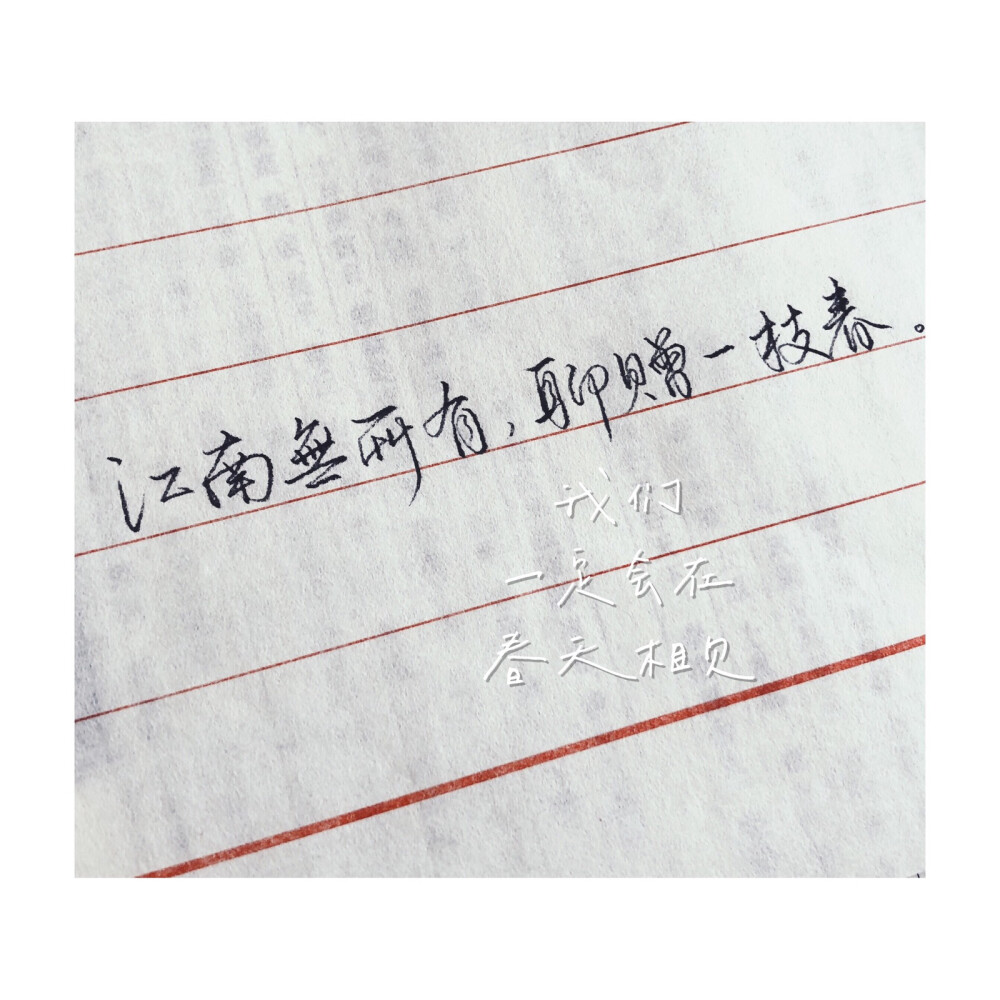 江南無所有，聊贈一枝春。
我们
一定会在
春天相见